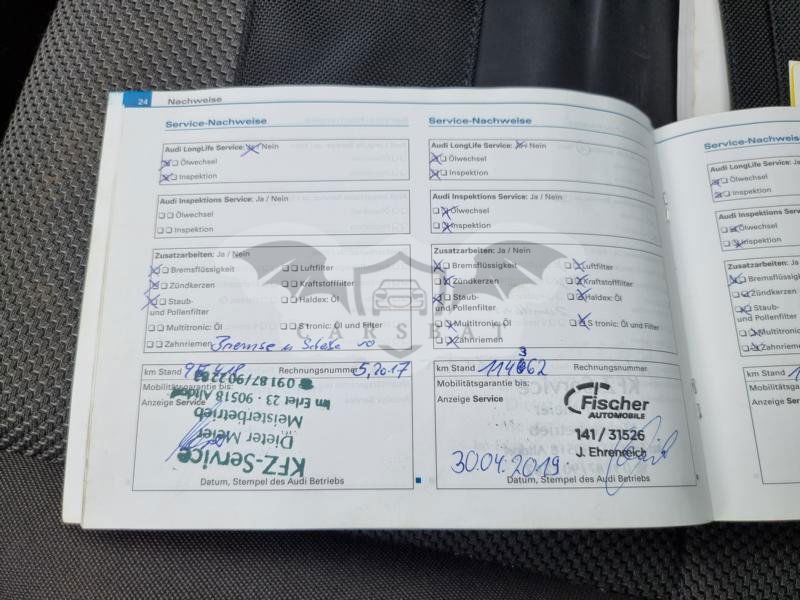 24 Nachweise
Service-Nachweise
Audi LongLife Service: Ja / Nein
Ölwechsel
Inspektion
Audi Inspektions Service: Ja / Nein
Ölwechsel
Inspektion
Zusatzarbeiten: Ja / Nein
Bremsflüssigkeit Luftfilter
Zündkerzen Kraftstofffilter
Staub- Haldex: Öl
und Pollenfilter
Multitronic: Öl S tronic: Öl und Filter
Zahnriemen Bremse
km Stand Rechnungsnummer 5,2017
Mobilitätsgarantie bis:
Anzeige Service
KFZ-Service
Dieter Meier
Meisterbetrieb
Im Erlet 23 · 90518 Altdorf
09187/90
Datum, Stempel des Audi Betriebs
Service-Nachweise
Audi LongLife Service: Ja / Nein
Ölwechsel
Inspektion
Audi Inspektions Service: Ja / Nein
Ölwechsel
Inspektion
Zusatzarbeiten: Ja / Nein
Bremsflüssigkeit Luftfilter
Zündkerzen Kraftstofffilter
Staub- Haldex: Öl
und Pollenfilter
Multitronic: Öl S tronic: Öl und Filter
Zahnriemen
km Stand Rechnungsnummer:
Mobilitätsgarantie bis:
Anzeige Service
Fischer
AUTOMOBILE
141 / 31526
J. Ehrenreich
30.04.2019
Datum, Stempel des Audi Betriebs
Service-Nachweise
Audi LongLife Service: Ja
Ölwechsel
Inspektion
Audi Inspektions Service
Ölwechsel
Inspektion
Zusatzarbeiten: Ja
Bremsflüssigkeit
Zündkerzen
Staub-
und Pollenfilter
Multitronic: Öl
Zahnriemen
km Stand
Mobilitätsgarantie
Anzeige Service
CARSBAT